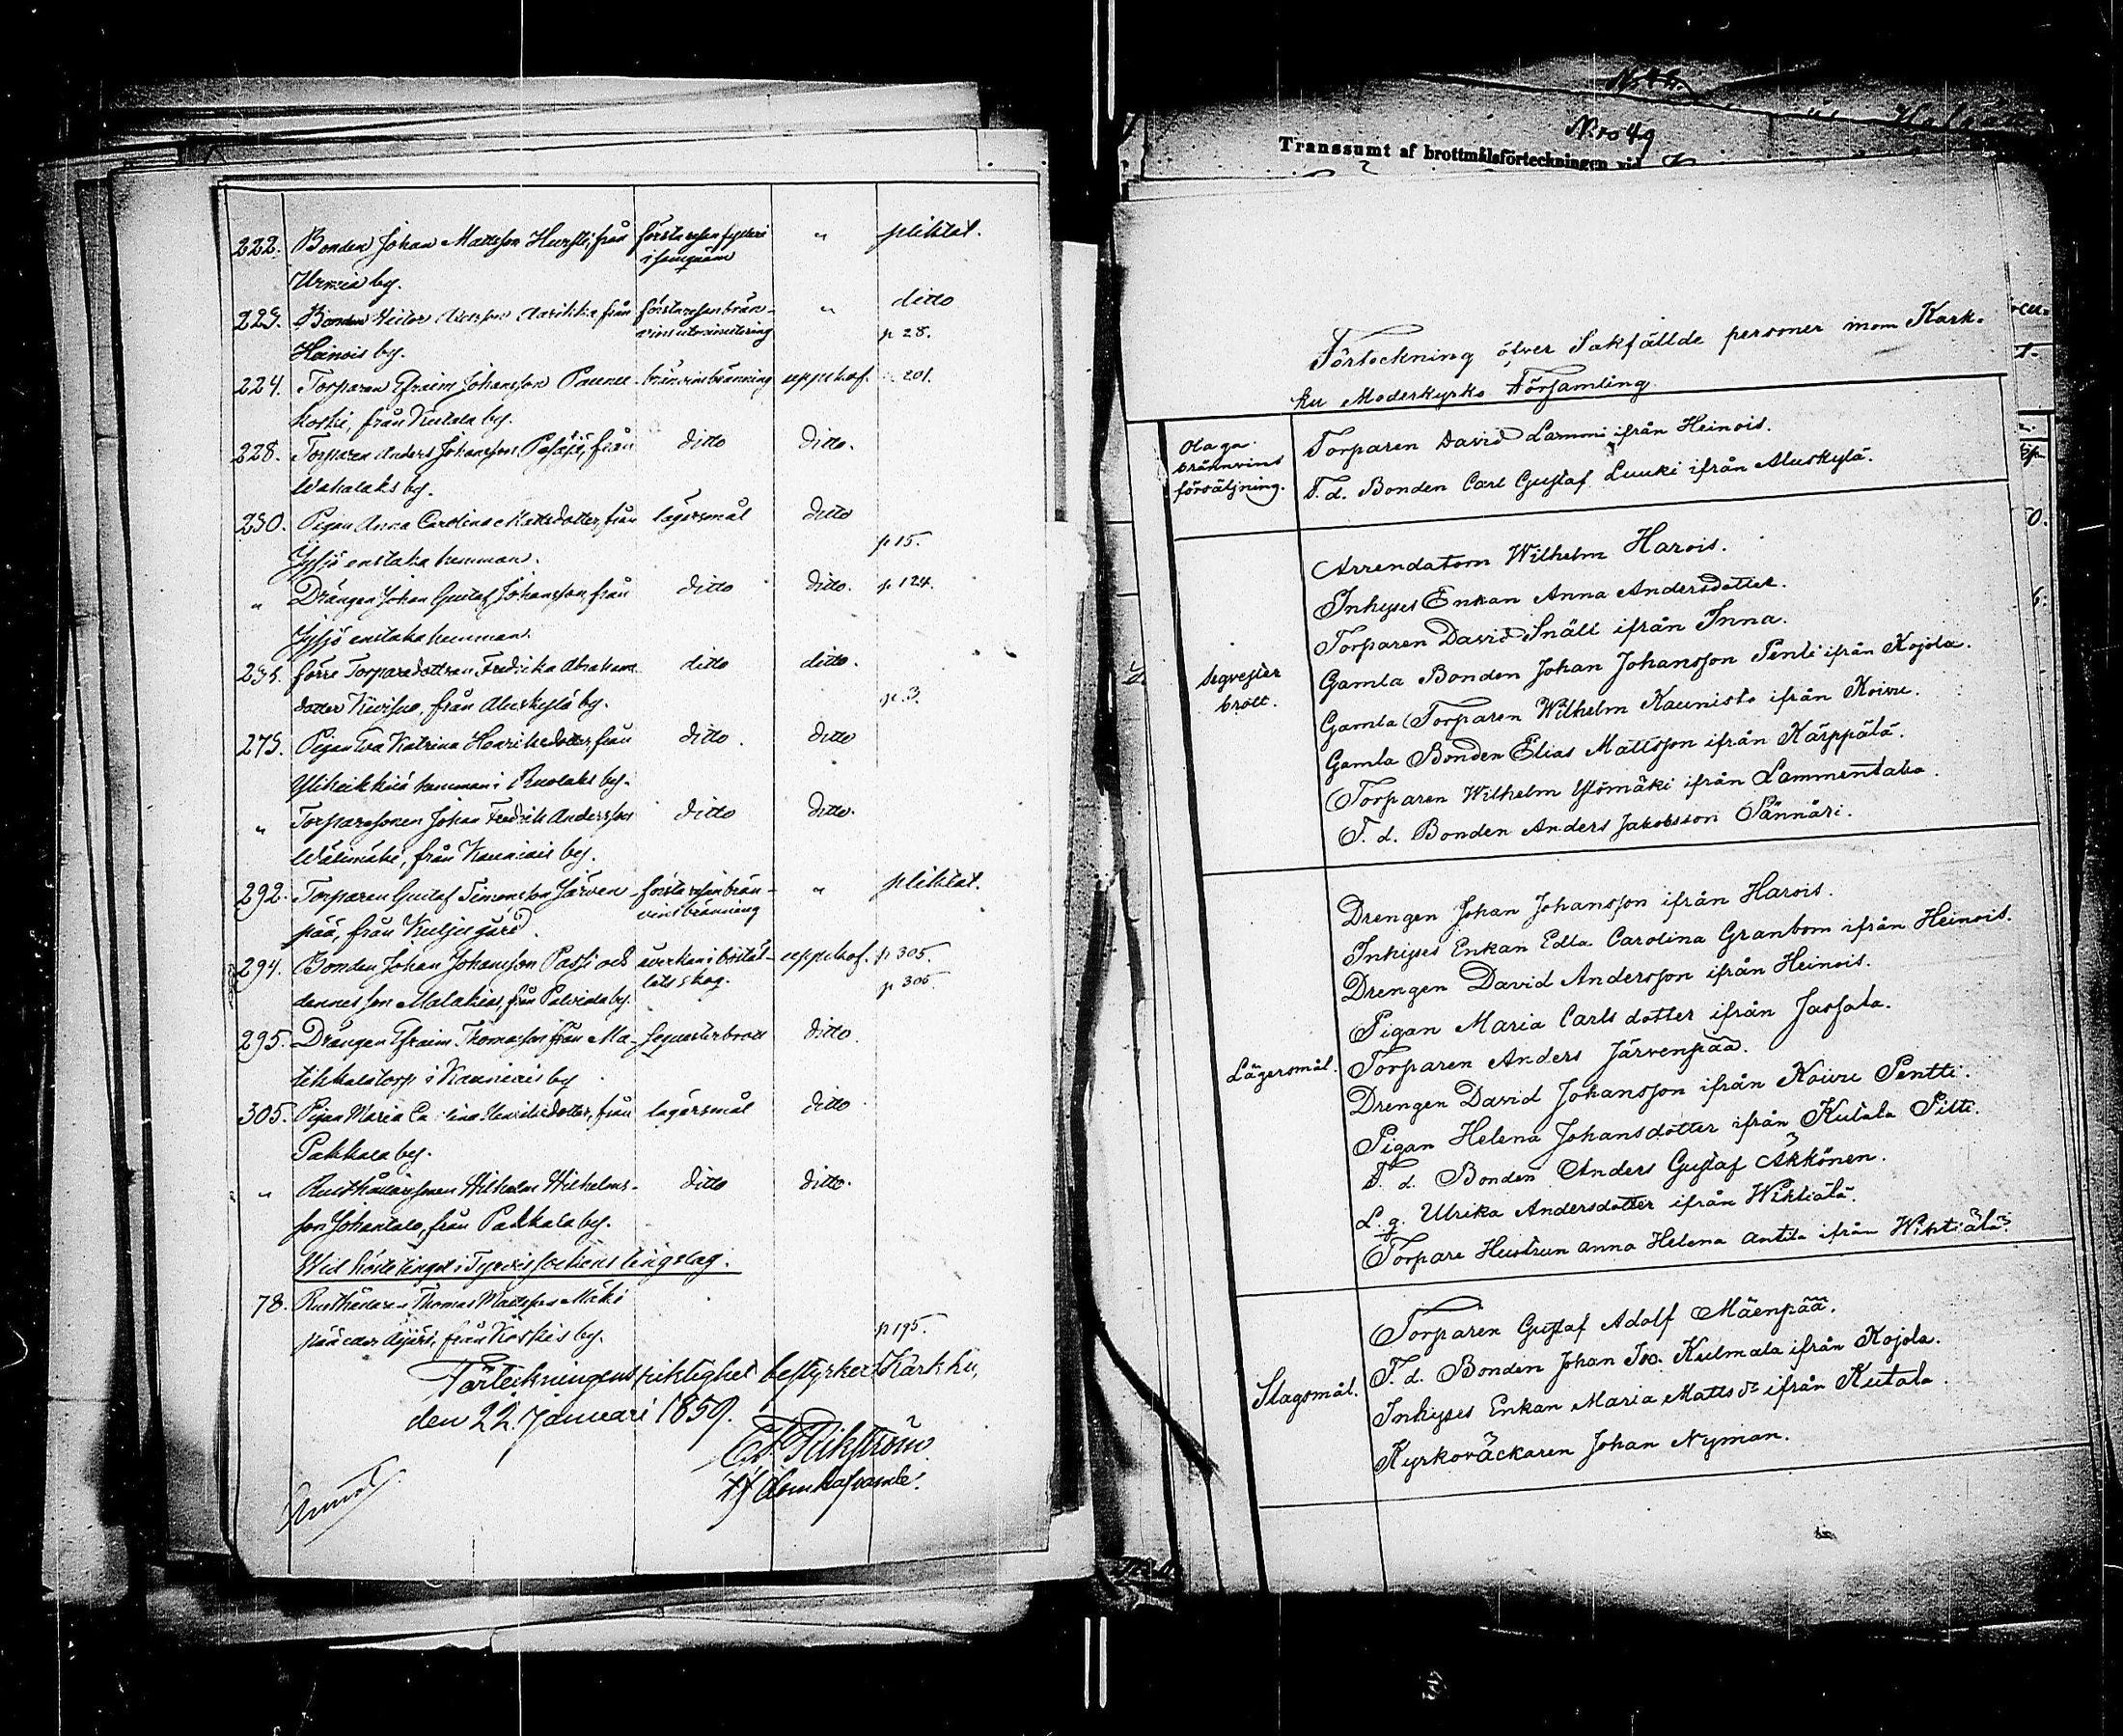 222. Bonden Johan Mattsson Hursti, från första resan fylleri " pliktat.
i sauqnäm
Urmia by.
223. Bonden från första resan brän- " ditto
vinsutminutering p 28.
Heinois by.
224. Torparen Efraim Johansson Paunu- bränvinsbränning uppskof. 201.
koski, från Kutala by.
228. Torparen Anders Johansson från ditto ditto.
Wahalaks by.
230. Pigan Anna Carolina Mattsdotter, från lägersmål ditto
enstaka hemman. p 15.
" Drängen Johan Gustaf Johansson, från ditto ditto. p 124.
enstaka hemman.
förre Torparedottren Fredrika Abrahams ditto ditto.
dotter från Aluskylä by. p. 3.
275. Pigan Eva Katrina Henriksdotter, från ditto ditto
hemman i by.
" Torparesonen Johan Fredrik Andersson ditto ditto.
Wälimäki, från Kauniais by.
292. Torparen Gustaf Simonsson Järven- första resan brän- " pliktat.
vinsbränning
pää, från Kulju gård.
294. Bonden Johan Johansson Passi och åverkan i bostäl- uppskof. p 305.
lets skog. p 306.
dennes son Malakias, från Palviala by.
295. Drängen Efraim Thomasson från Ma- Sequesterbrott ditto
tikkala torp i Kauniais by
305. Pigan Maria Ca lina Henriksdotter, från lägersmål ditto
Pakkala by.
" Rusthållaresonen Wilhelm Wilhelms- ditto ditto.
son Johantalo, från Pakkala by.
Wid hösteringet i Tyrvis sockens tingslag.
78. Rusthållaren Thomas Mattsson Mäki
pää eller Äijärs, från Koskis by. p 195.
Förteckningens riktighet bestyrker, Karkku,
den 22. Januari 1859.
Nro 49
Transsumt af brottmålsförteckningen vid
Förteckning öfver Sakfällde personer inom Kark-
ku Moderkyrko Församling
Olaga
brännvins
försäljning.
Torparen David Lammi ifrån Heinois.
T. d. Bonden Carl Gustaf Luuki ifrån Aluskylä.
Segvester
brott.
Arrendatorn Wilhelm Harois.
Inhyses Enkan Anna Andersdotter.
Torparen David Snäll ifrån Inna.
Gamla Bonden Johan Johansson Penti ifrån Kojola.
Gamla Torparen Wilhelm Kaunisto ifrån Koivu.
Gamla Bonden Elias Mattsson ifrån Kärppälä.
Torparen Wilhelm Ylömäki ifrån Lammentaka.
T. d. Bonden Anders Jakobsson Pännäri.
Lägersmål.
Drengen Johan Johansson ifrån Harois.
Inhyses Enkan Edla Carolina Granbom ifrån Heinois.
Drengen David Andersson ifrån Heinois.
Pigan Maria Carlsdotter ifrån Jassala.
Torparen Anders Järvenpää.
Drengen David Johansson ifrån Koivu Pentti.
Pigan Helena Johansdotter ifrån Kutala Pitti.
T. d. Bonden Anders Gustaf Äkkönen.
L. g. Ulrika Andersdotter ifrån Wihtiälä.
Torpare Hustrun Anna Helena Antila ifrån Wihtiälä.
Slagsmål.
Torparen Gustaf Adolf Mäenpää.
T. d. Bonden Johan Kulmala ifrån Kojola.
Inhyses Enkan Maria Matts dr ifrån Kutala.
Kyrkoväckaren Johan Nyman.